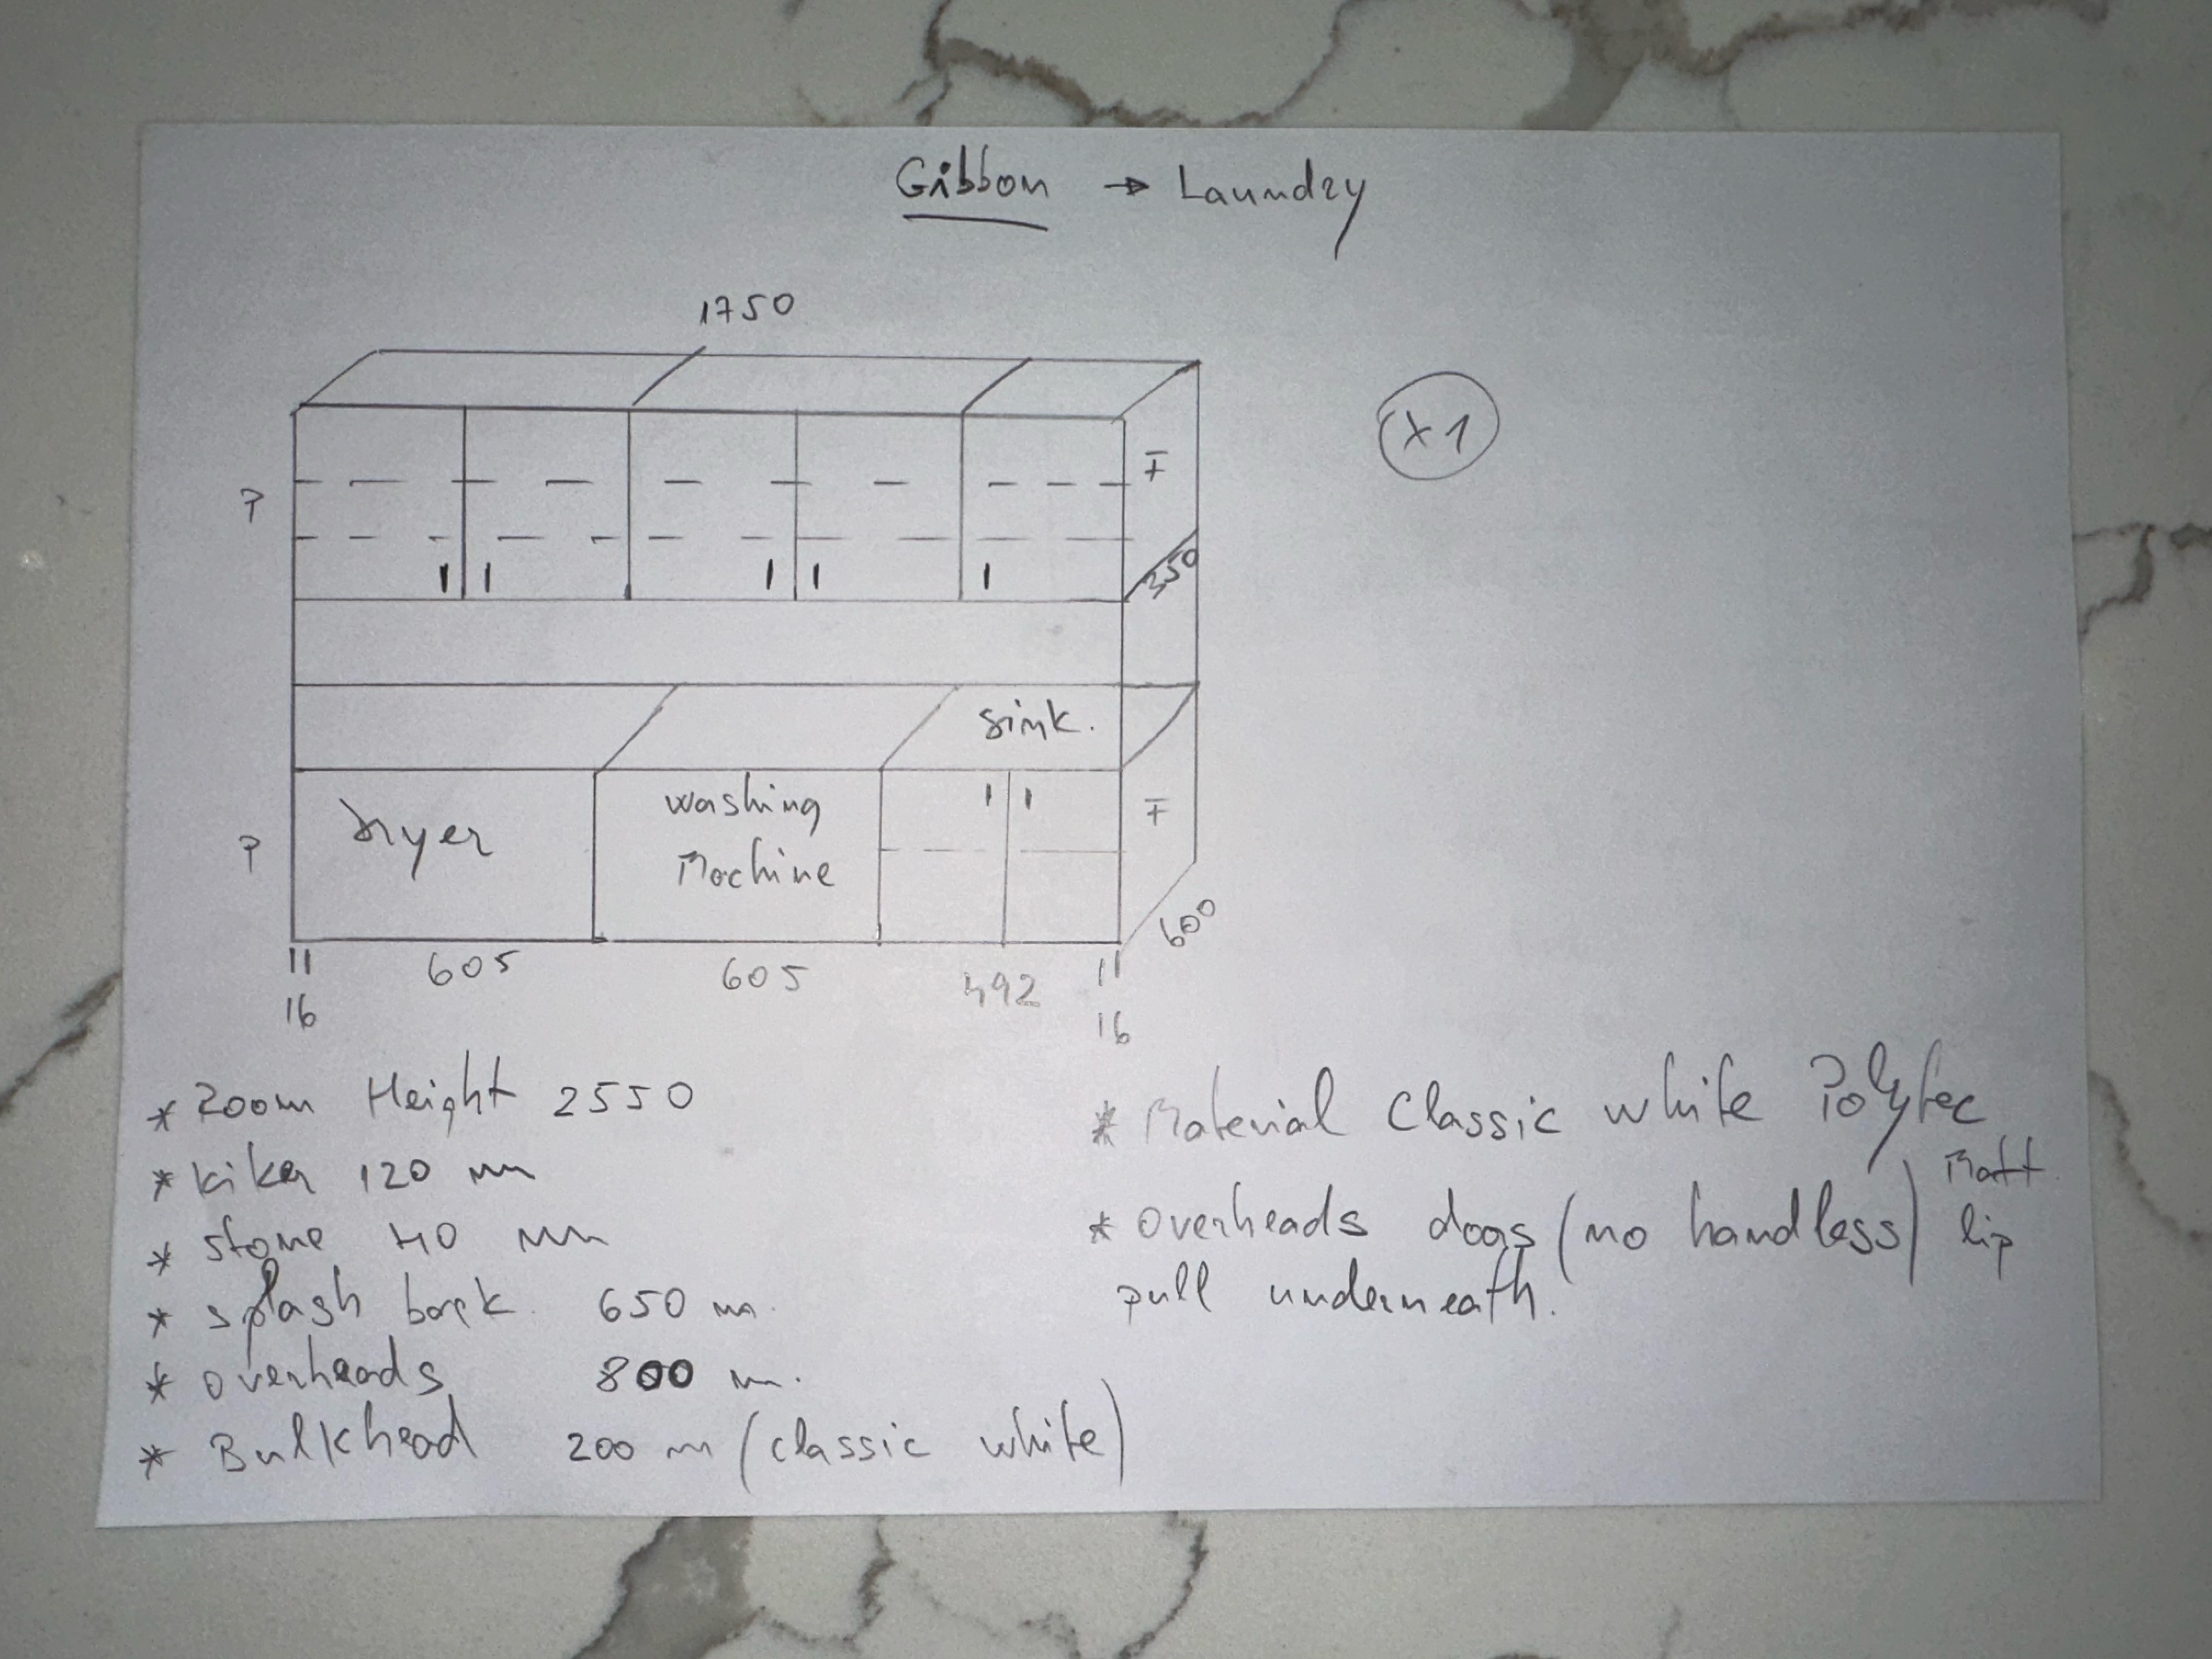 Gibbon → Laundry
1750
x1
F
?
350
sink.
Dryer
washing
Machine
F
?
600
11 605 605 492 11
16 16
* Room Height 2550
* kiker 120 mm
* stone 40 mm
* splash back 650 m.
* overheads 800 m.
* Bulkhead 200 m (classic white)
* Material Classic white Polytec
Matt
* overheads doors (no handless) lip
pull underneath.